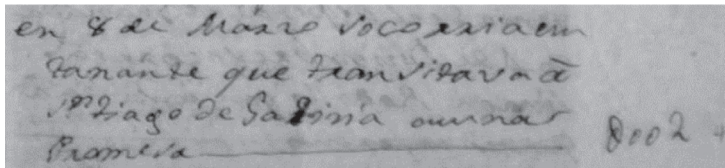 en 8 de Marzo socorri a un
tanante que transitava â
Sn tiago de Galisia a una
Promesa 0002